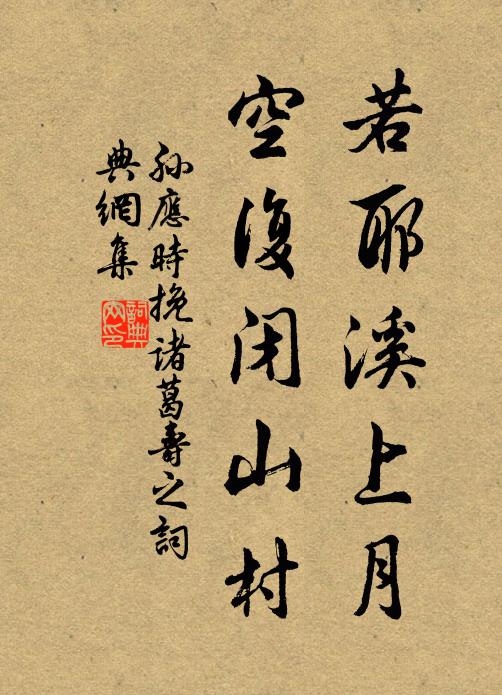 若耶溪上月
空復閉山村
孫應時挽諸葛壽之詞
典網集
詞典網印